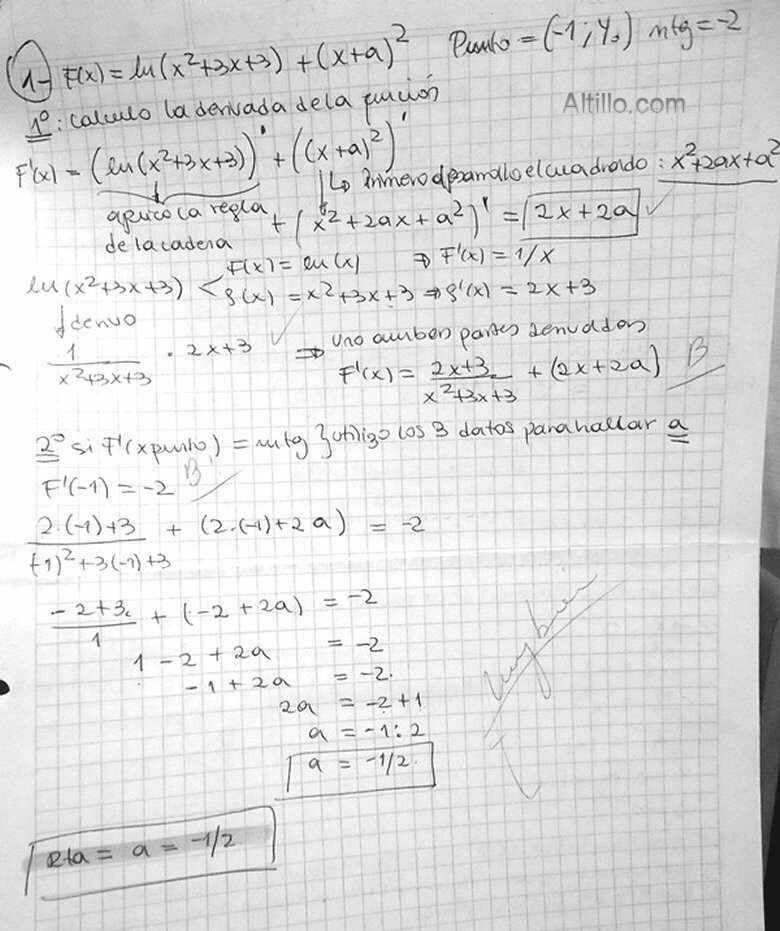 1- F(x) = ln(x²+3x+3) + (x+a)² Punto = (-1; y₀) mtg = -2
Altillo.com
1º: calculo la derivada de la función
F'(x) = (ln(x²+3x+3))' + ((x+a)²)'
↳ Primero desarrollo el cuadrado: x²+2ax+a²
aplico la regla de la cadena
+ (x² + 2ax + a²)' = 2x + 2a
ln(x²+3x+3) < F(x) = ln(x) ⇒ F'(x) = 1/x
g(x) = x²+3x+3 ⇒ g'(x) = 2x+3
↓ derivo
1/(x²+3x+3) · 2x+3 ⇒ uno ambas partes derivadas
F'(x) = (2x+3)/(x²+3x+3) + (2x+2a) B
2º si F'(x punto) = mtg } utilizo los 3 datos para hallar a
F'(-1) = -2 B
(2·(-1)+3)/((-1)²+3(-1)+3) + (2·(-1)+2a) = -2
(-2+3)/1 + (-2+2a) = -2
1 - 2 + 2a = -2
-1 + 2a = -2
2a = -2+1
a = -1:2
a = -1/2
muy bien
Rta = a = -1/2